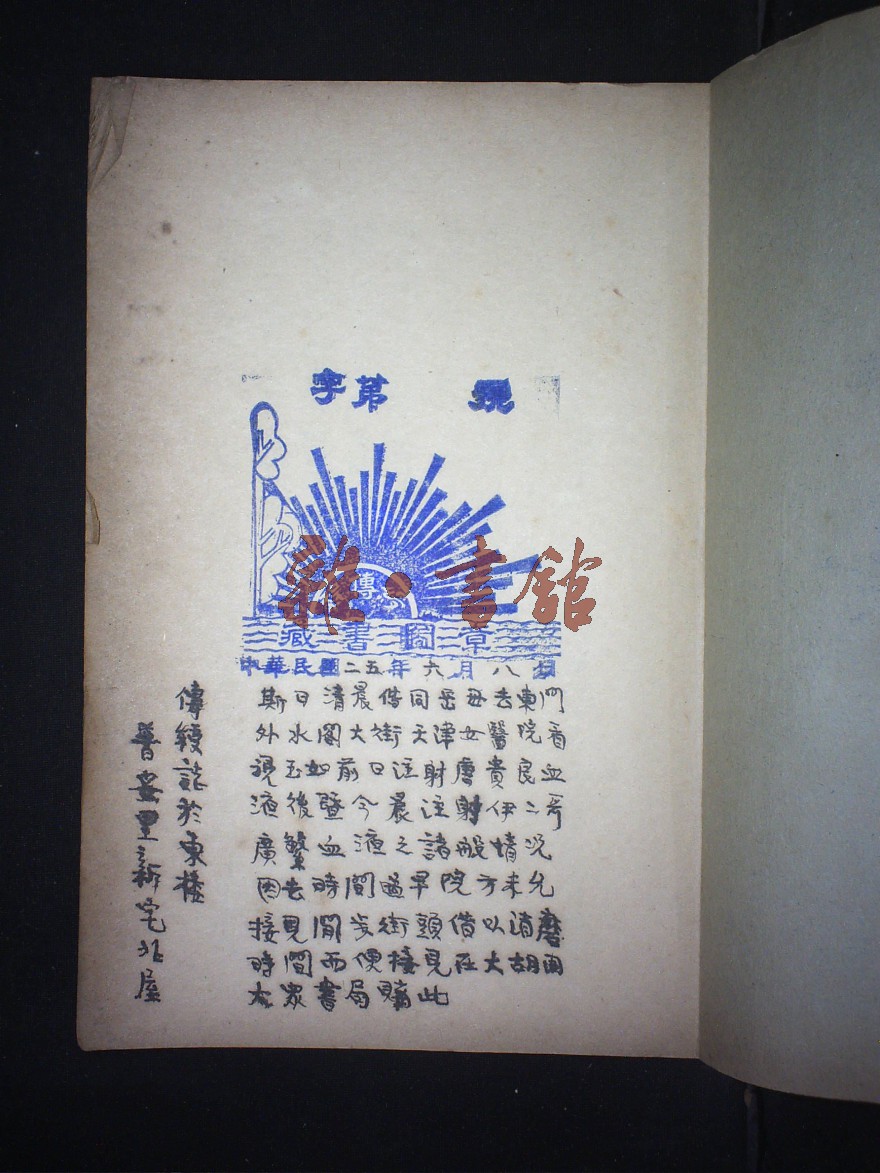 字第 號
傳
雜·書館
藏書圖章
中華民國二五年六月八日
斯日清晨偕同岳母去東門
外水閣大街天津女醫院看
視玉如前日注射唐貴良血
液後暨今晨注射伊二哥
廣繁血液之諸般情況
因去時間過早院方未允
接見閒步街頭借以消磨
時間而便接見在大胡同
大眾書局購此
傳綬誌於東樓
普愛里新宅北屋